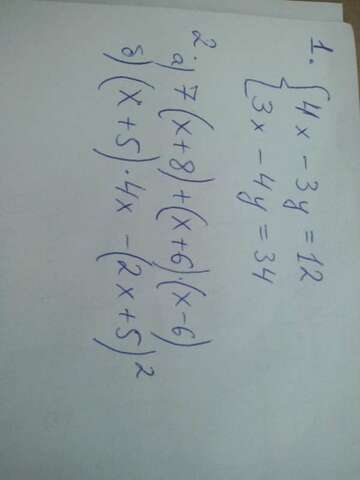 1. { 4x - 3y = 12
{ 3x - 4y = 34
2. а) 7(x+8)+(x+6)·(x-6)
б) (x+5)·4x - (2x+5)²